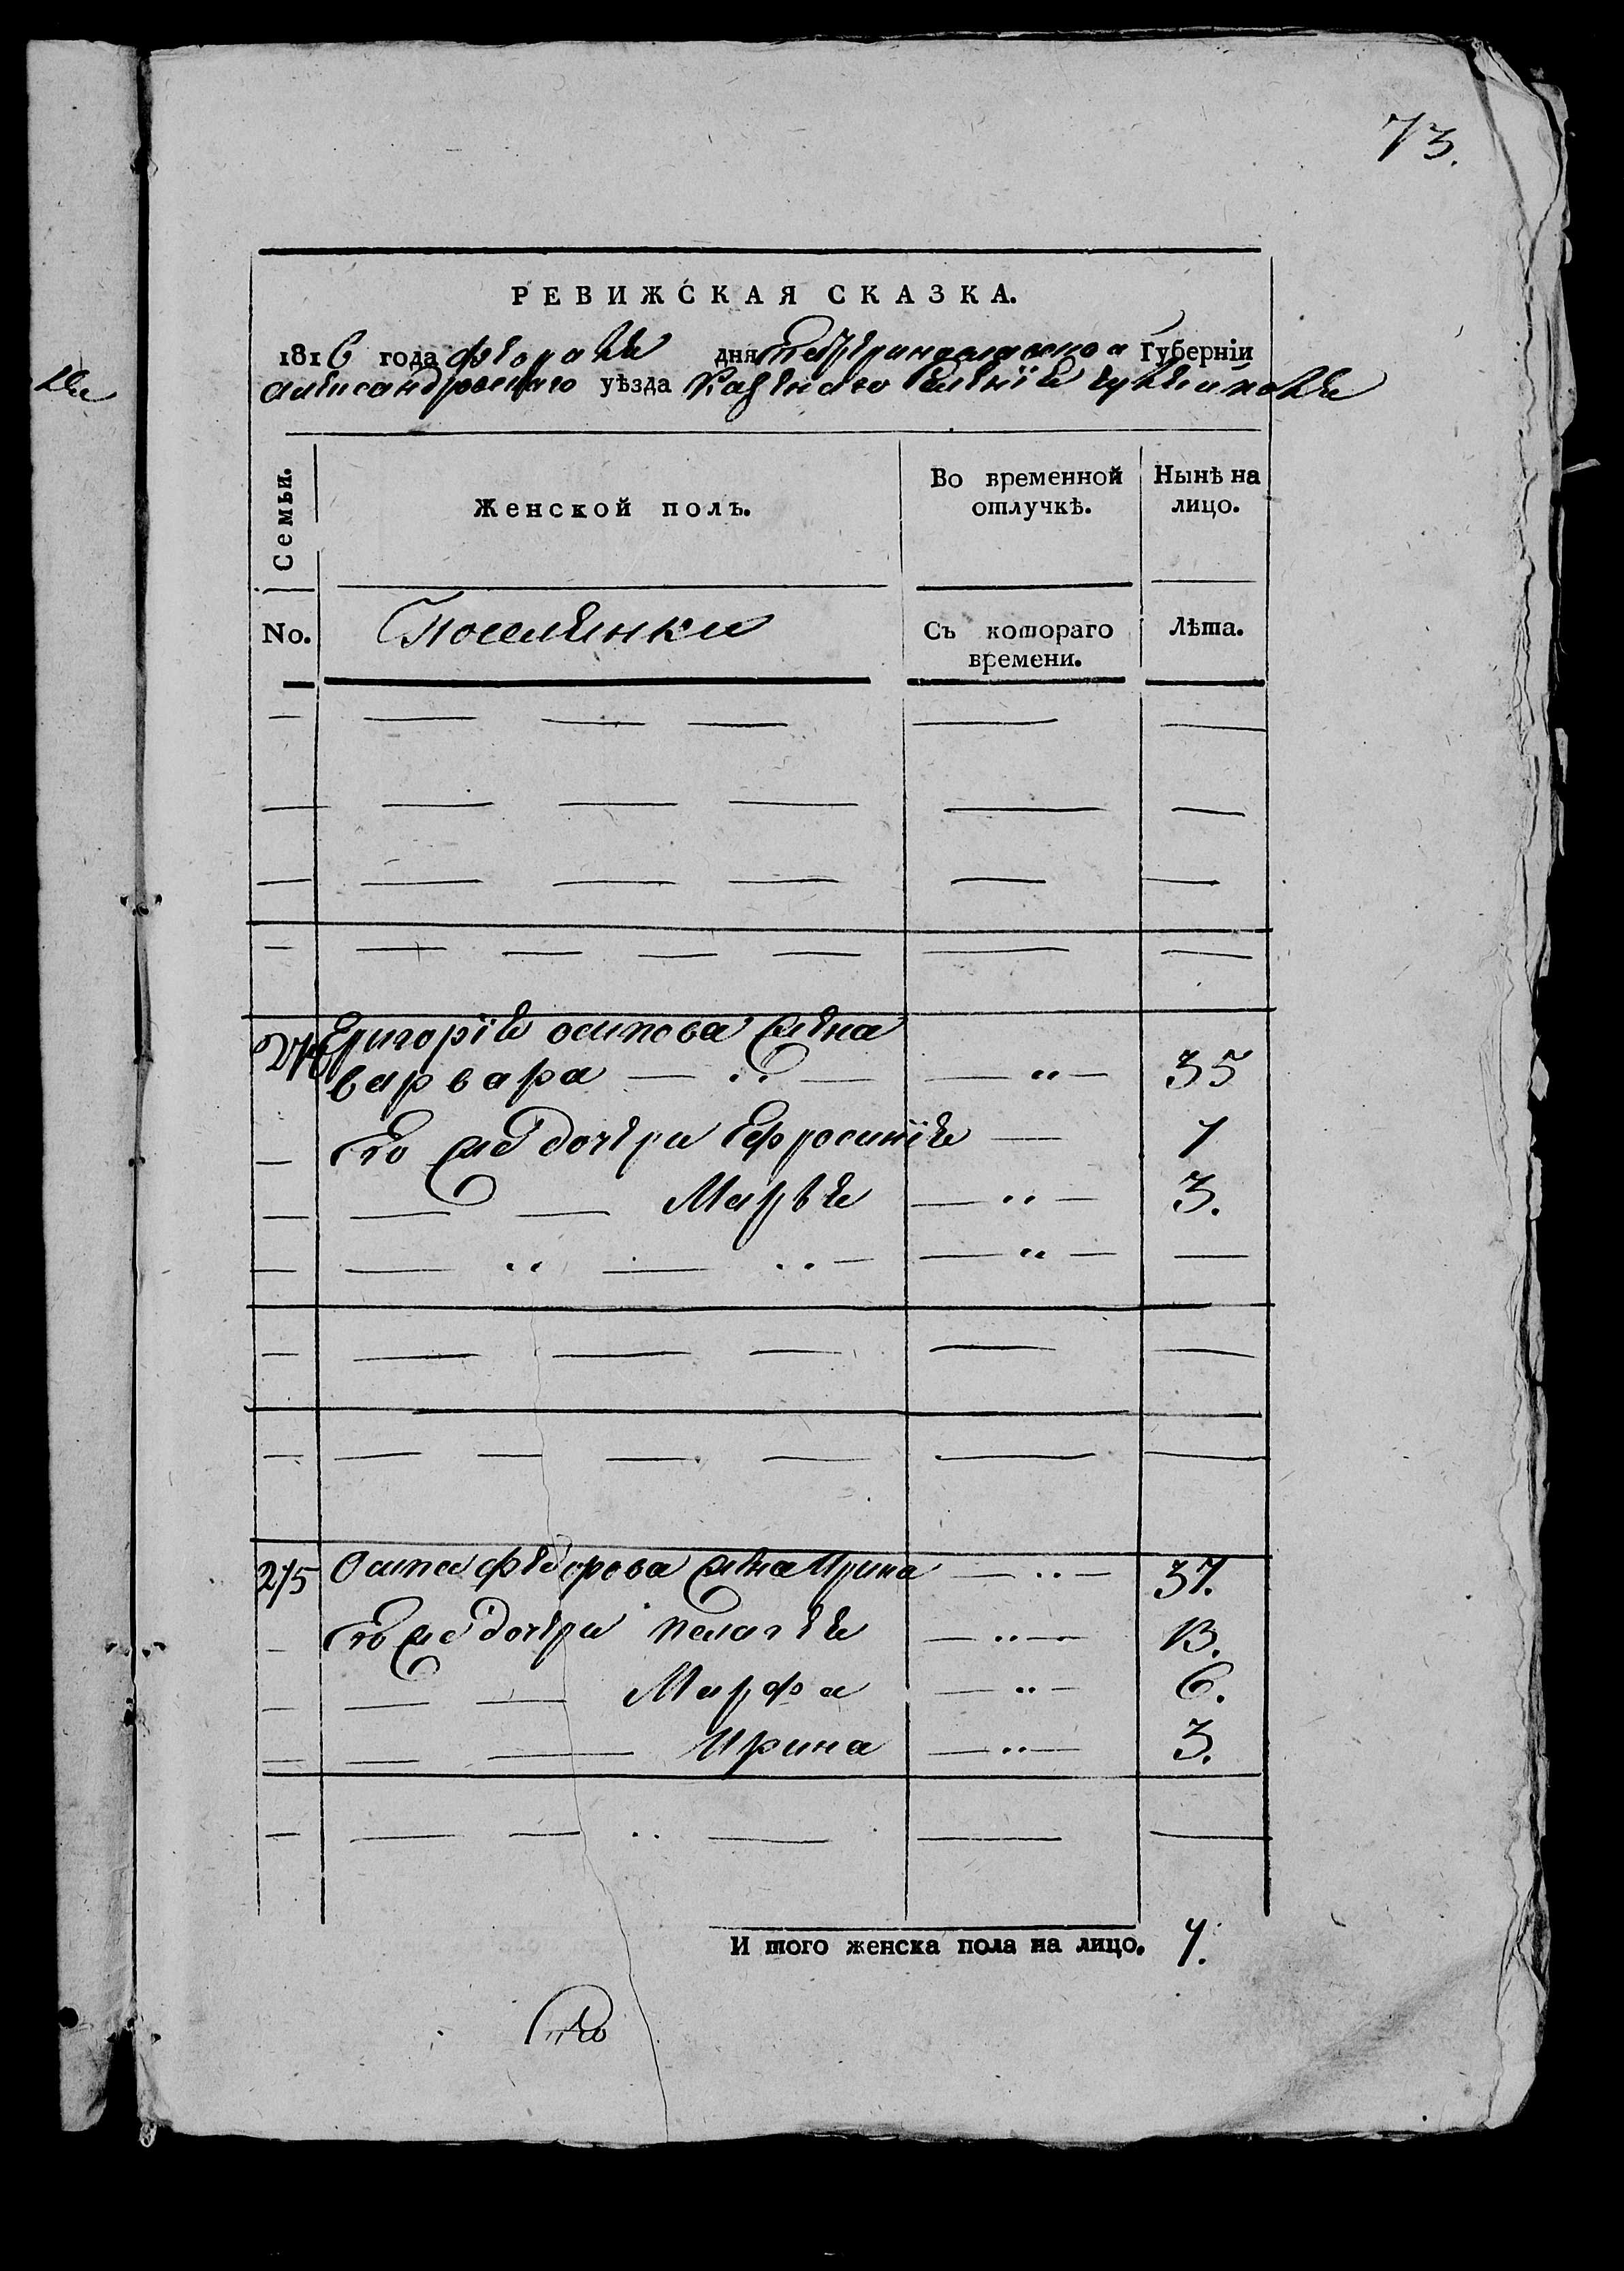 73.
РЕВИЖСКАЯ СКАЗКА.
1816 года февраля дня Екатеринославской Губерніи
александровскаго уѣзда казенного селенія
Семьи.
Женской полъ.
Во временной отлучкѣ.
Нынѣ на лицо.
No.
Поселянки
Съ котораго времени.
Лѣта.
274 Григорія осипова жена
варвара — 35
Его же дочери Ефросинія — 7
Марья — 3.
275 Осипа федорова жена Ирина — 37.
Его же дочери пелагея — 13.
Марфа — 6.
Ирина — 3.
И того женска пола на лицо. 7.